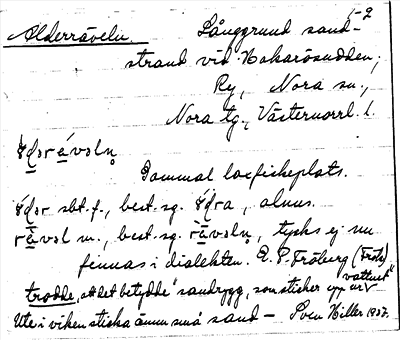 Alderråveln Långgrund sand- 1-2
strand vid Hakarösudden;
Ry, Nora sn.,
Nora tg., Västernorrl. l.
Gammal laxfiskeplats.
sbt. f., best. sg. , alnus.
m., best. sg. , tycks ej nu
finnas i dialekten. E. P. Fröberg
trodde, att det betydde "sandrygg, som sticker upp ur vattnet"
Ute i viken sticka ännu små sand – Sven Hiller 1937.